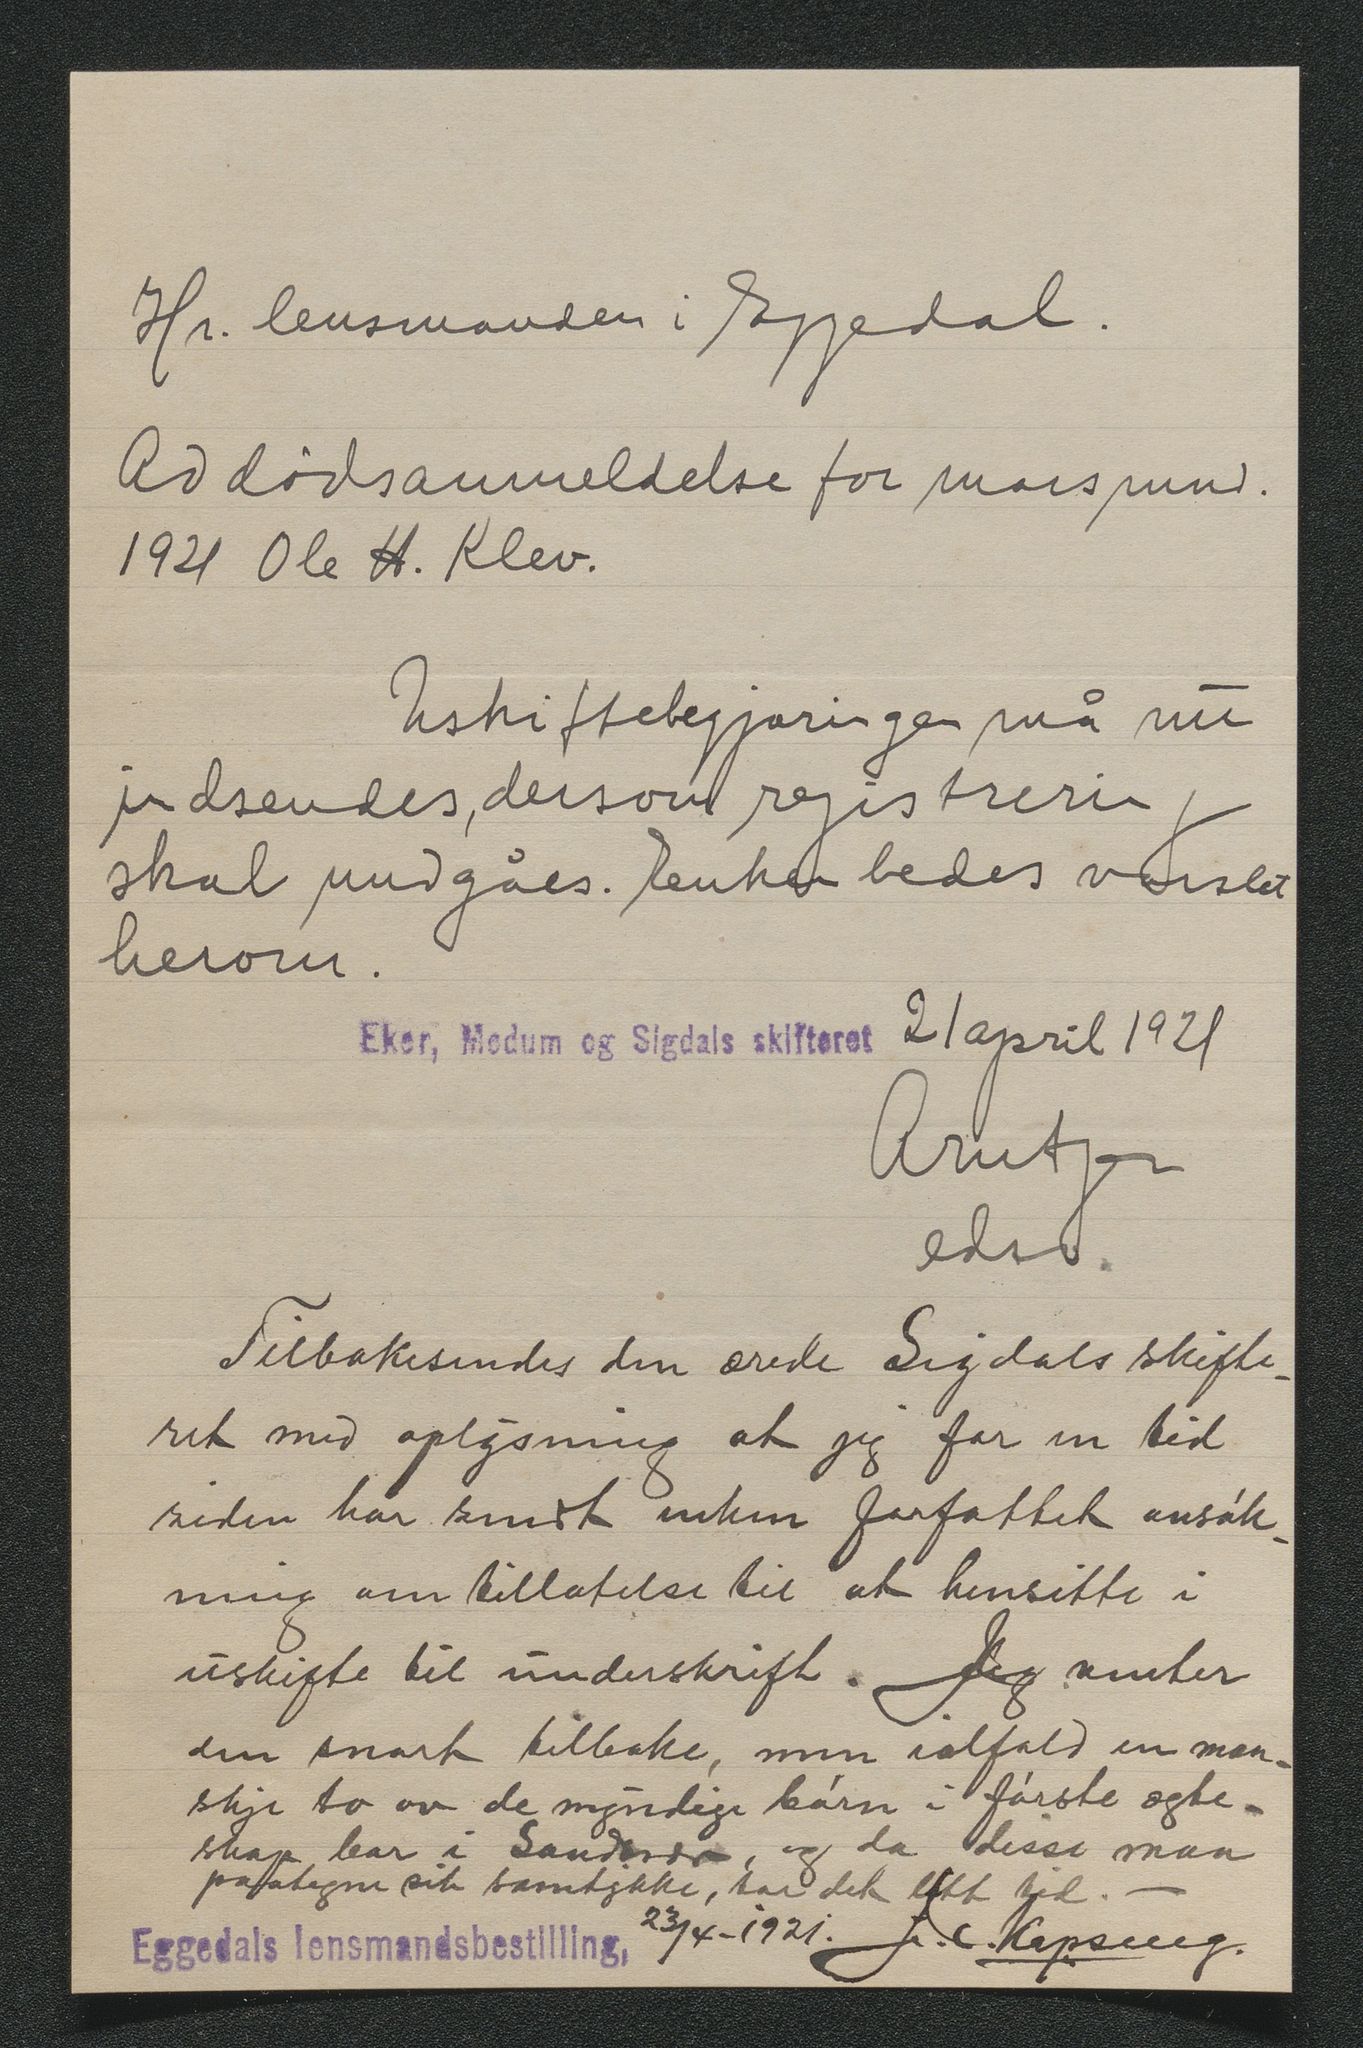 Hr. lensmanden i Eggedal.
Ad dødsanmeldelse for mars mnd.
1921 Ole H. Klev.
Uskiftebegjæringen må nu
indsendes, dersom registrering
skal undgåes. Enken bedes varslet
herom.
Eker, Modum og Sigdals skifteret 21 april 1921
edsv.
Tilbakesendes den ærede Sigdals skifte-
ret med oplysning at jeg for en tid
siden har sendt enken forfattet ansøk-
ning om tillatelse til at hensitte i
uskifte til underskrift. Jeg venter
den snart tilbake, men ialfald en maa-
skje to av de myndige børn i første egte-
skap bor i Sandsvær, og da disse maa
paategne sit samtykke, tar det litt tid. —
Eggedals lensmandsbestilling, 23/4-1921. J. C. Kopseng.